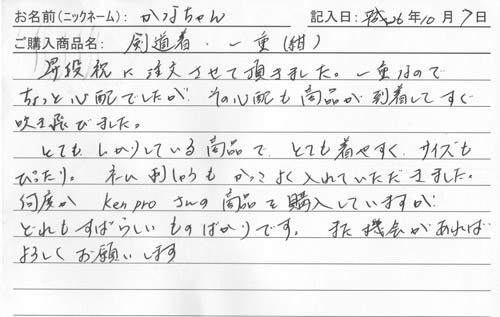 お名前(ニックネーム): かなちゃん 記入日: 平成26年10月7日
ご購入商品名: 剣道着・一重(紺)
昇段祝に注文させて頂きました。一重なので
ちょっと心配でしたが、その心配も商品が到着してすぐ
吹き飛びました。
とても、しっかりしている商品で、とても着やすく、サイズも
ぴったり。ネーム刺しゅうもかっこよく入れていただきました。
何度か Ken pro さんの商品を購入していますが
どれもすばらしいものばかりです。また機会があれば
よろしくお願いします